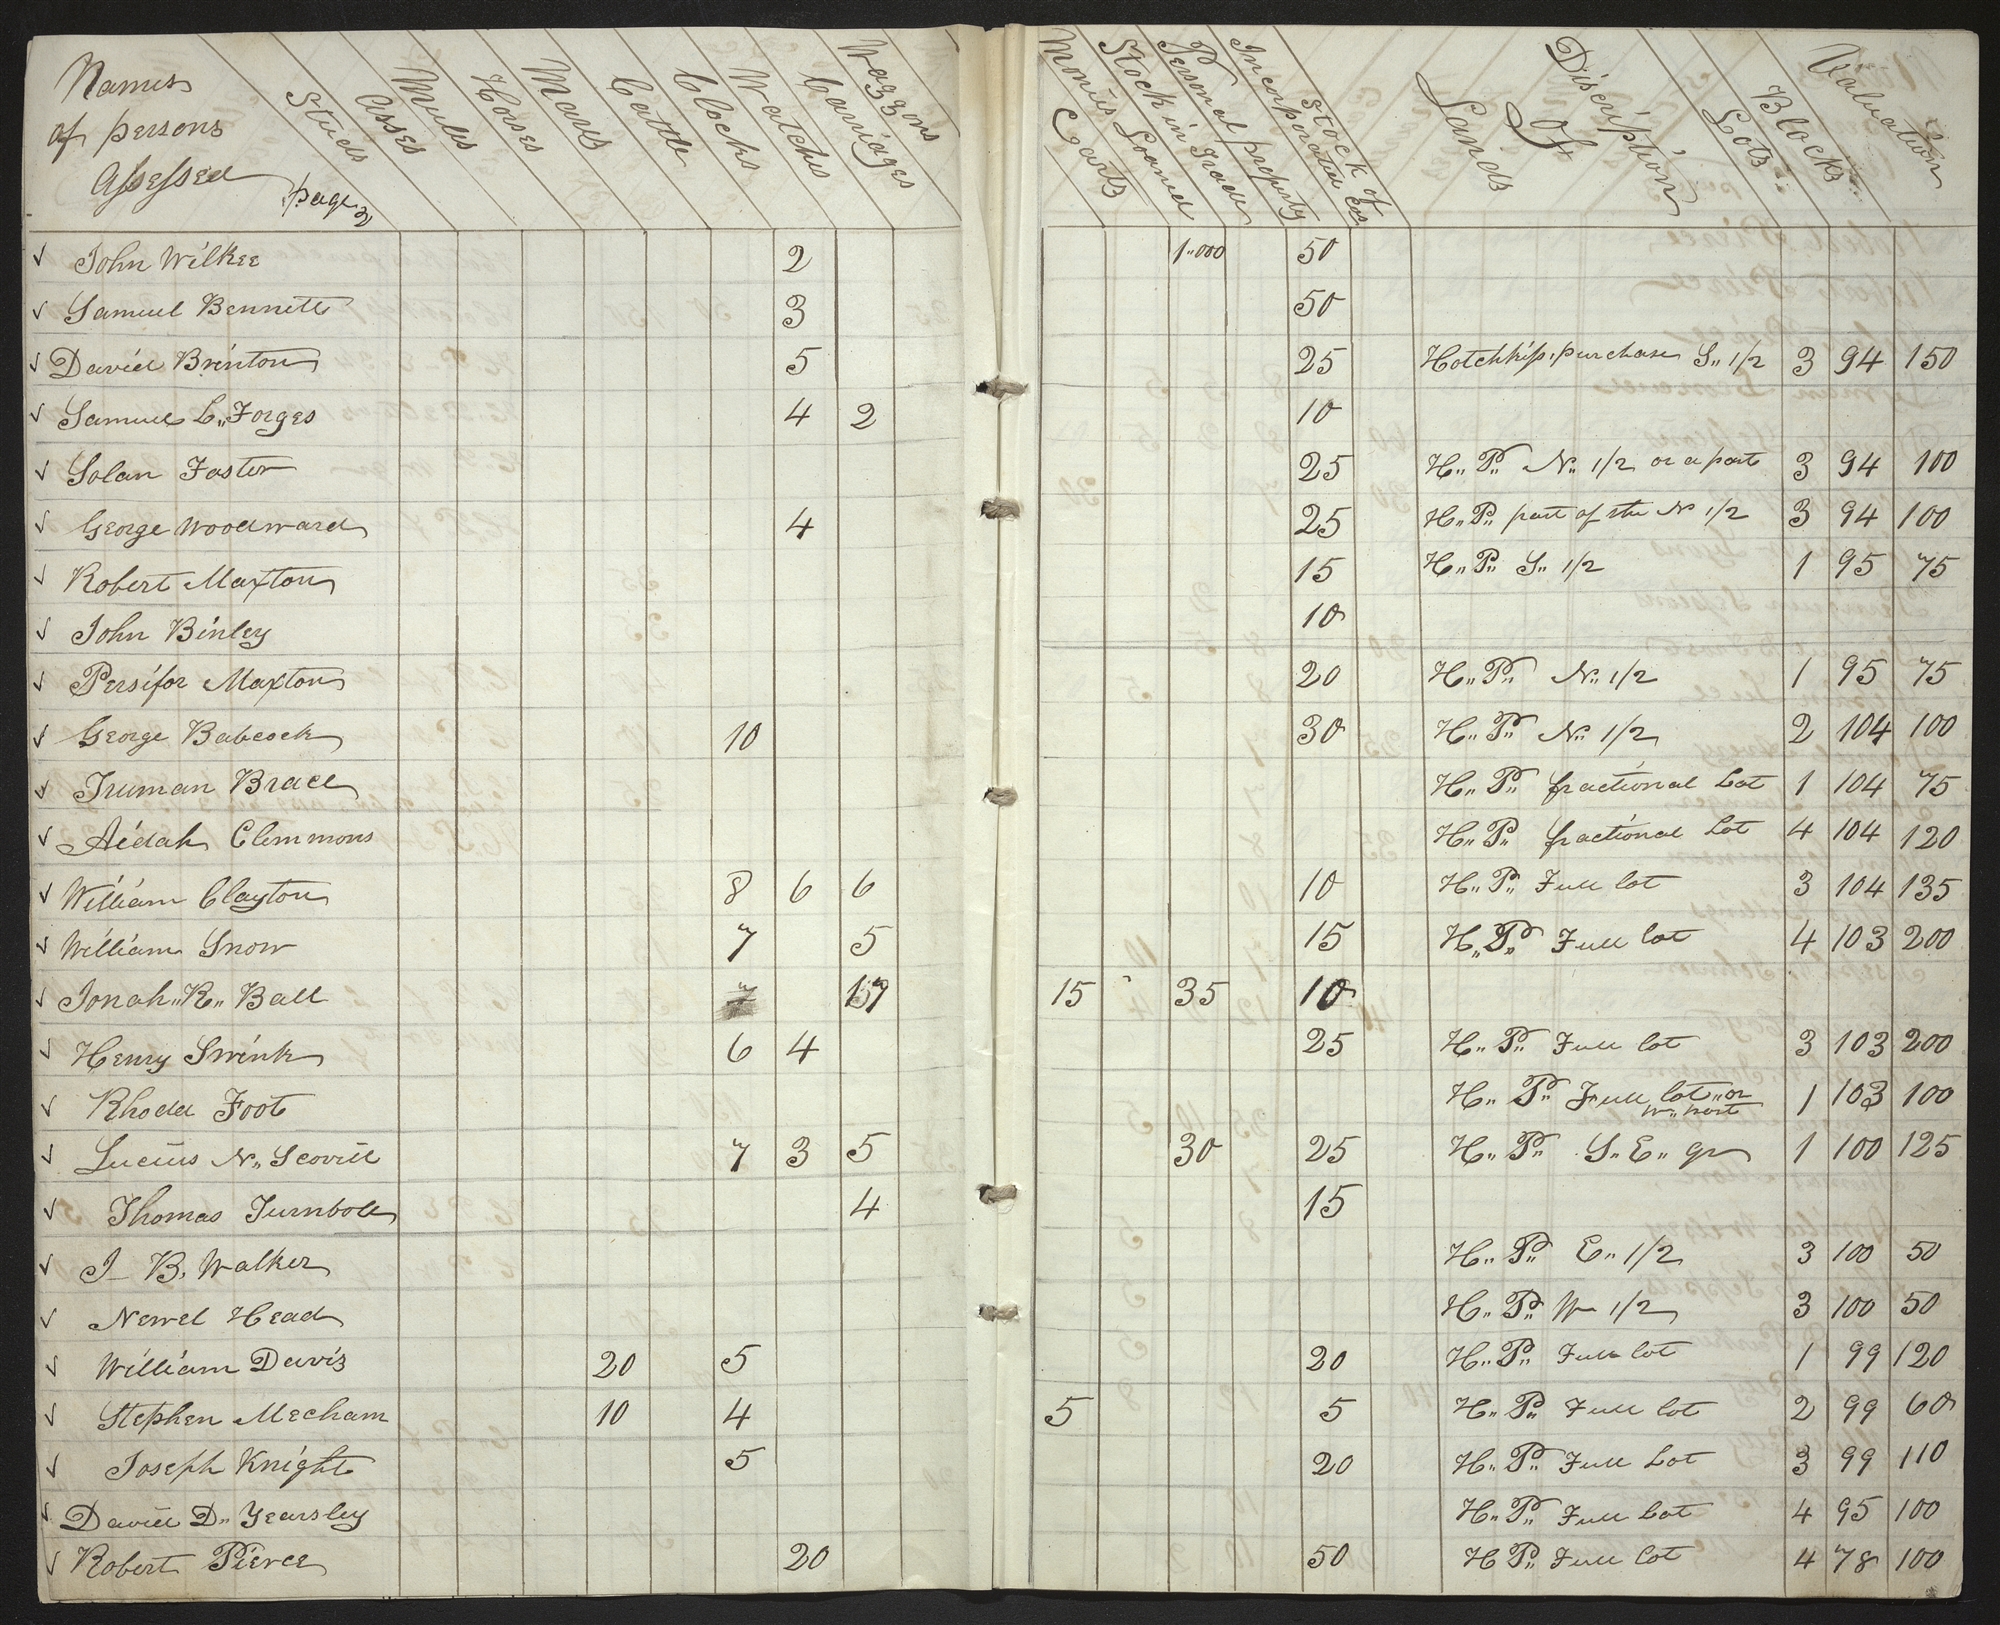 Names of persons Assessed page 2 Studs Asses Mules Horses Mares Cattle Clocks Watches Carriages Waggons Carts Monies Loaned Stock in Trade Personal property Stock of Incorporated Cos. Discription Of Lands Lots Blocks Valuation
John Wilkee 2 1"000 50
Samuel Bennett 3 50
David Brinton 5 25 Hotchkiss purchase S" 1/2 3 94 150
Samuel L" Forges 4 2 10
Solan Foster 25 H" P" N" 1/2 or a part 3 94 100
George Woodward 4 25 H" P" part of the N 1/2 3 94 100
Robert Maxton 15 H" P" S" 1/2 1 95 75
John Binley 10
Persifor Maxton 20 H" P" N" 1/2 1 95 75
George Babcock 10 30 H" P" N" 1/2 2 104 100
Truman Brace H" P" fractional Lot 1 104 75
Aidah Clemmons H" P" fractional Lot 4 104 120
William Clayton 8 6 6 10 H" P" Full lot 3 104 135
William Snow 7 5 15 H" P" Full lot 4 103 200
Jonah" R" Ball 7 15 35 10
Henry Swink 6 4 25 H" P" Full lot 3 103 200
Rhoda Foot H" P" Full lot" or W" part 1 103 100
Lucius N" Scovill 7 3 5 30 25 H" P" S" E" qr 1 100 125
Thomas Turnboll 4 15
J B. Walker H" P" E" 1/2 3 100 50
Newel Head H" P" W 1/2 3 100 50
William Davis 20 5 20 H" P" Full lot 1 99 120
Stephen Mecham 10 4 5 5 H" P" Full lot 2 99 60
Joseph Knight 5 20 H" P" Full Lot 3 99 110
David D" Yearsley H" P" Full Lot 4 95 100
Robert Pierce 20 50 H P" Full lot 4 78 100